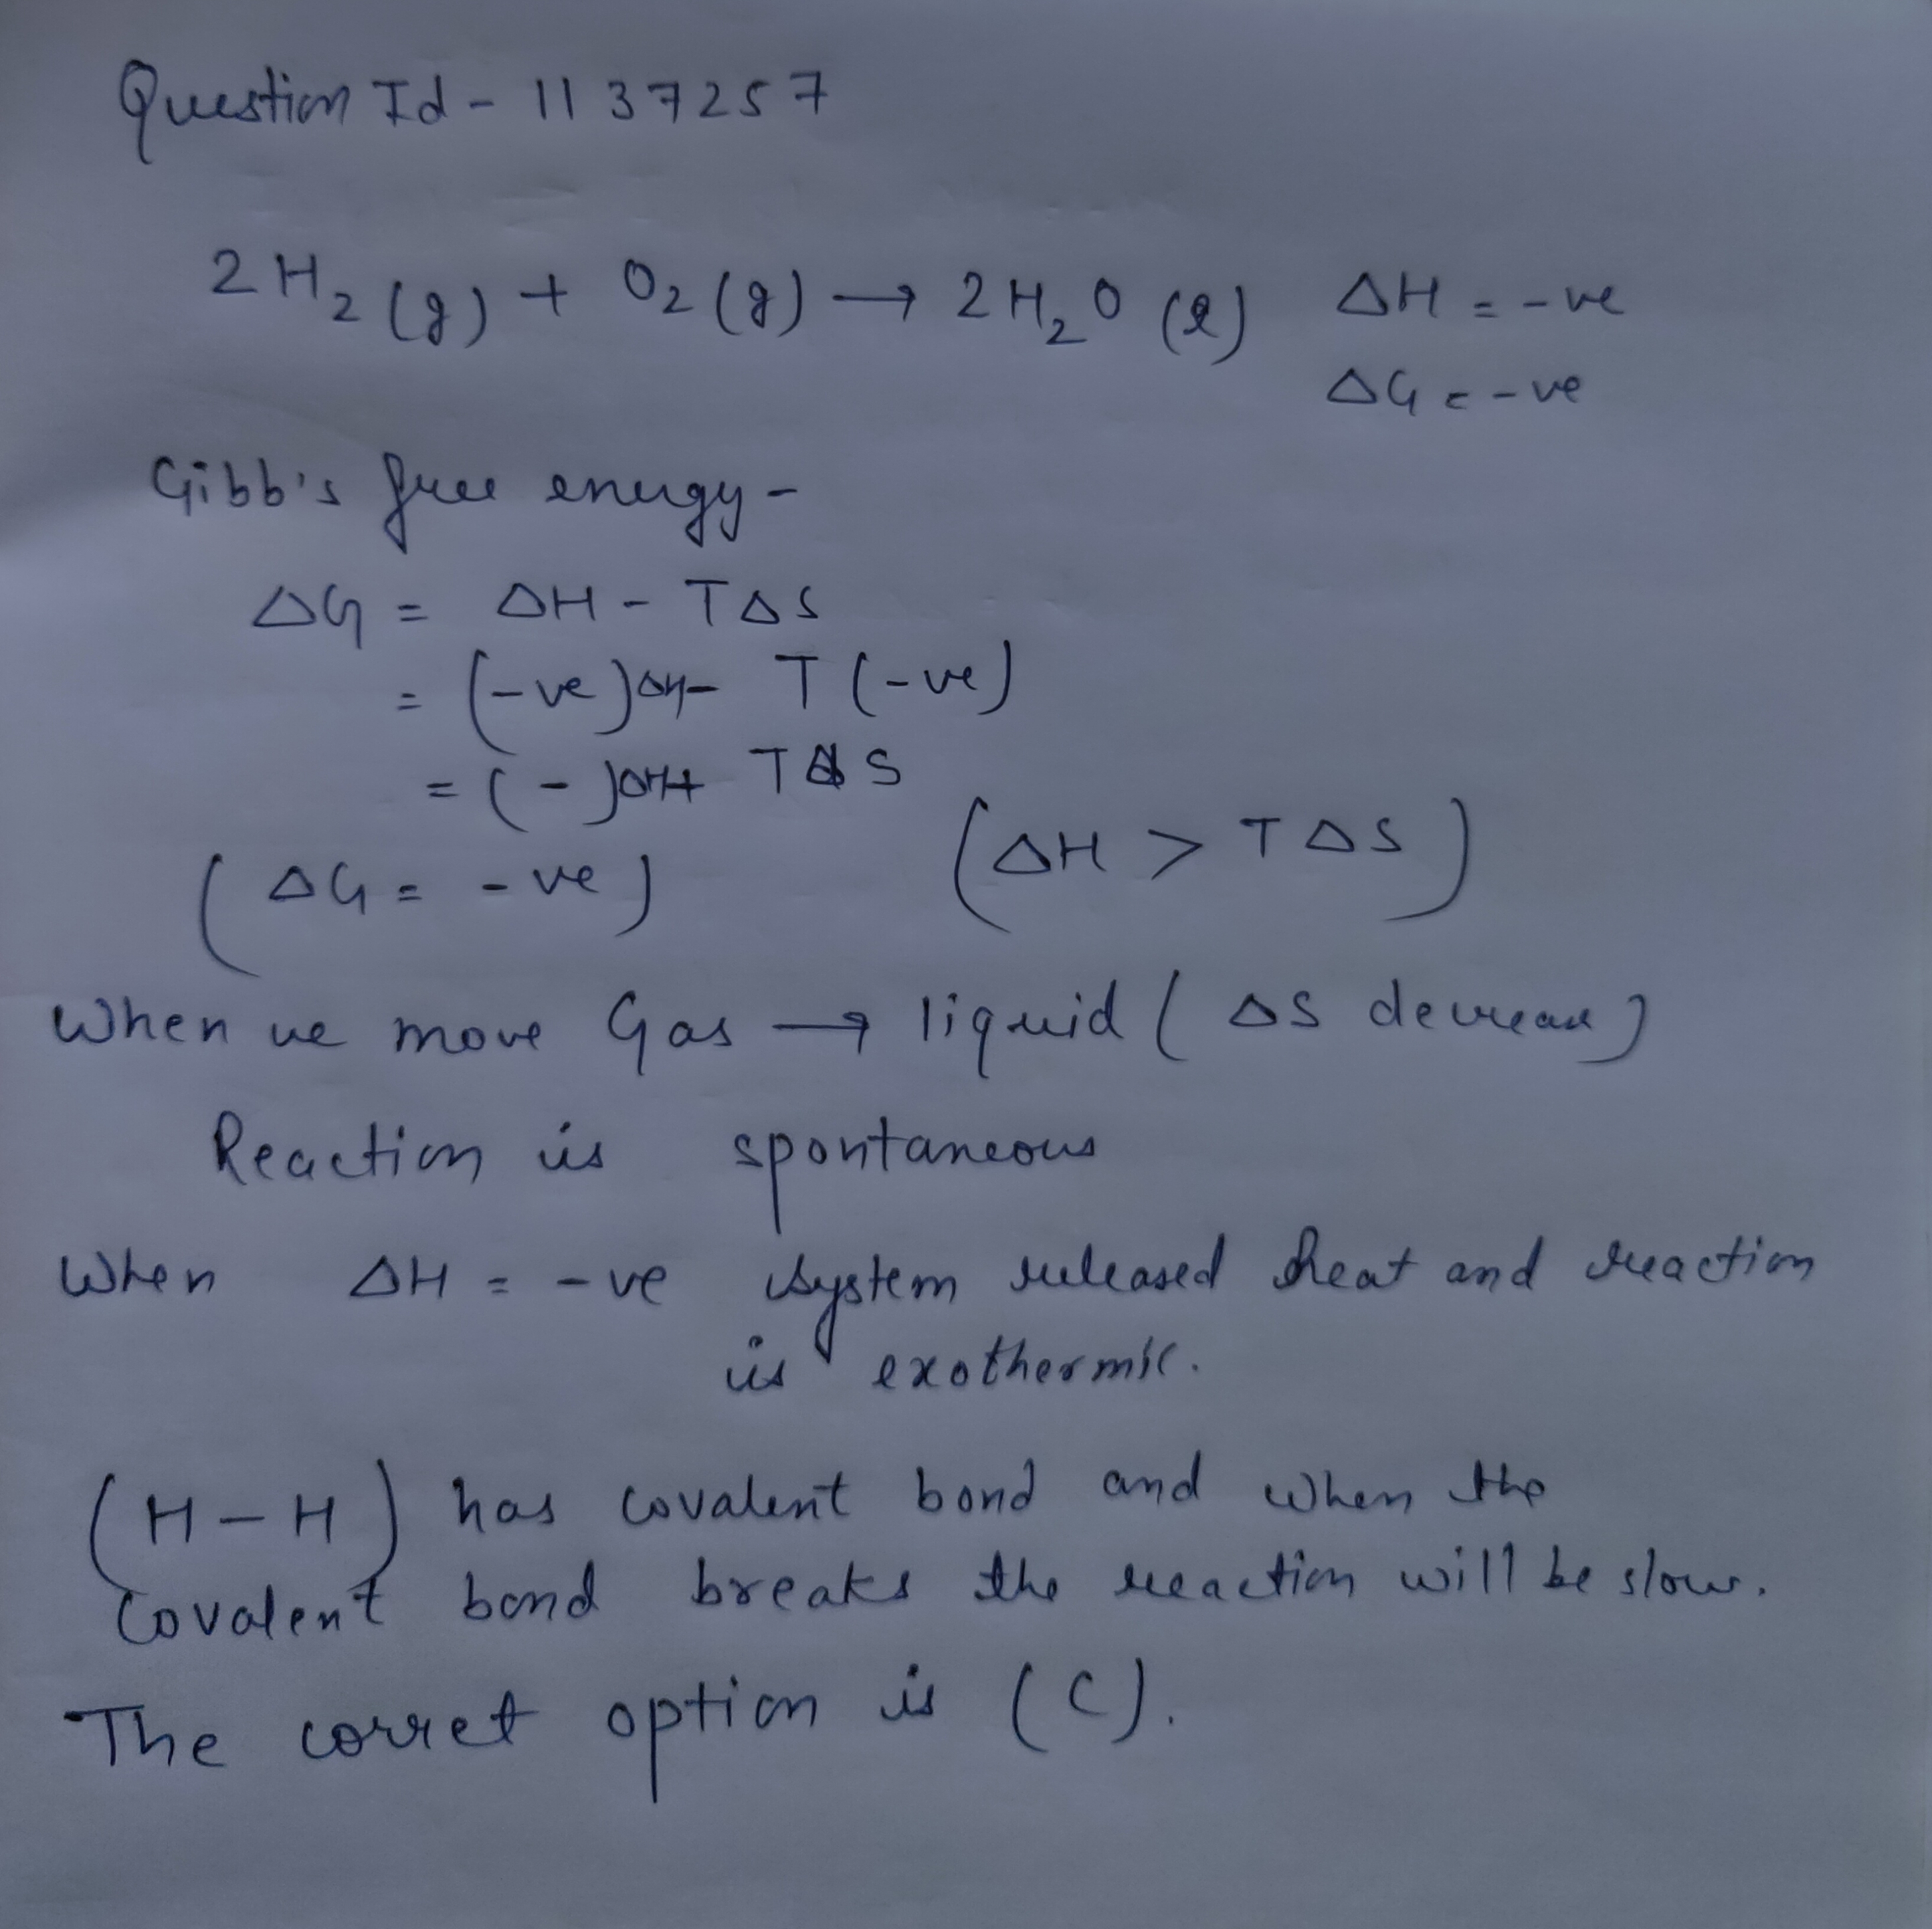 Question Id - 1137257
2H₂(g) + O₂(g) → 2H₂O(l) ΔH = -ve
ΔG = -ve
Gibb's free energy -
ΔG = ΔH - TΔS
= (-ve)ΔH - T(-ve)
= (-)ΔH + TΔS
(ΔG = -ve) (ΔH > TΔS)
When we move Gas → liquid (ΔS decrease)
Reaction is spontaneous
When ΔH = -ve system released heat and reaction
is exothermic.
(H-H) has covalent bond and when the
covalent bond breaks the reaction will be slow.
The corret option is (C).